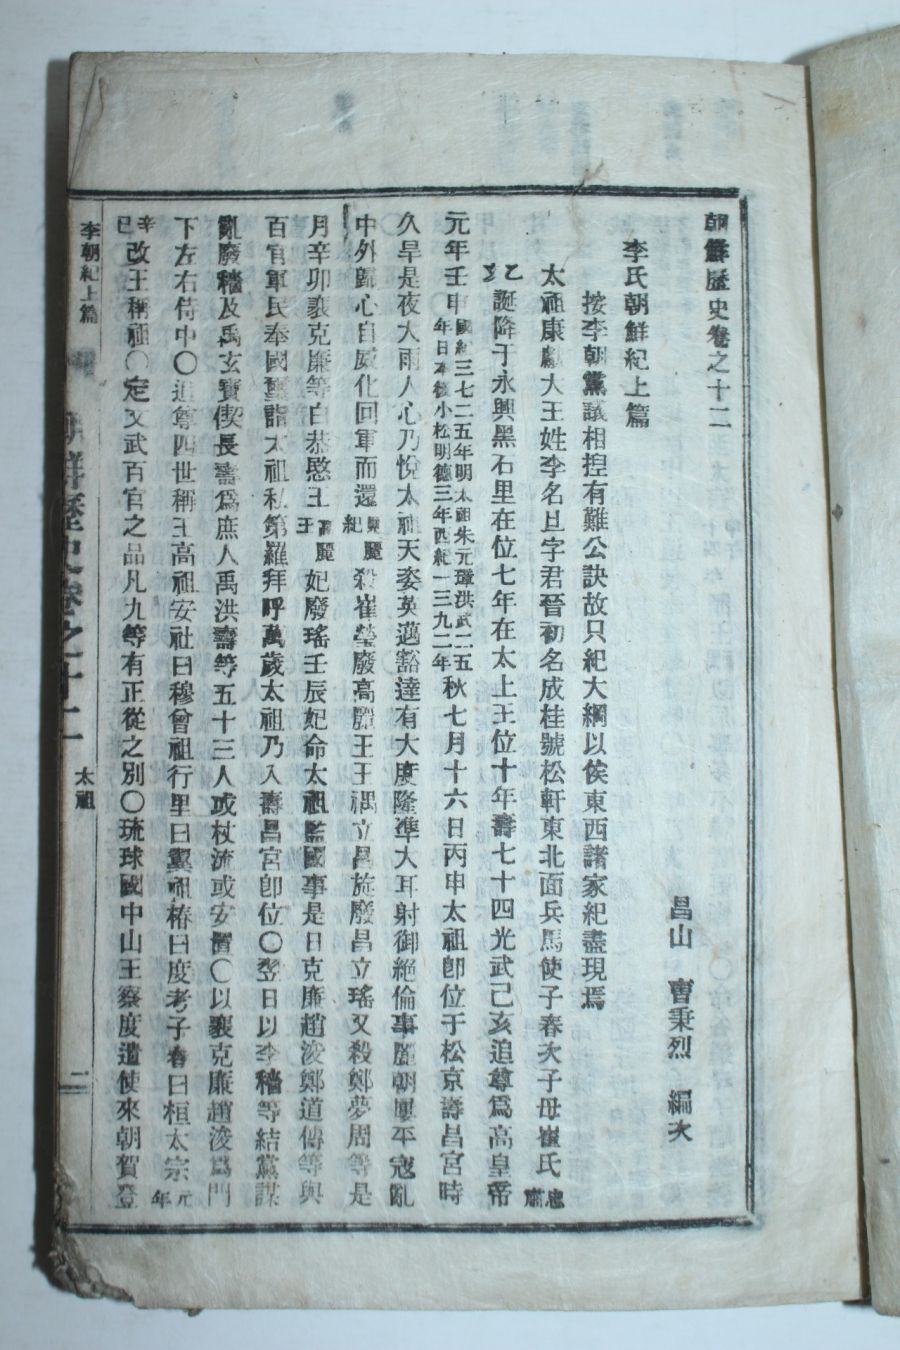 朝鮮歷史卷之十二
昌山 曺秉烈 編次
李氏朝鮮紀上篇
按李朝黨議相揑有難公訣故只紀大綱以俟東西諸家紀盡現焉
太祖康獻大王姓李名旦字君晉初名成桂號松軒東北面兵馬使子春次子母崔氏忠肅
乙亥誕降于永興黑石里在位七年在太上王位十年壽七十四光武己亥追尊爲高皇帝
元年壬申國紀三七二五年明太祖朱元璋洪武二五年日本後小松明德三年西紀一三九二年秋七月十六日丙申太祖卽位于松京壽昌宮時
久旱是夜大雨人心乃悅太祖天姿英邁豁達有大度隆準大耳射御絶倫事麗朝屢平寇亂
中外歸心自威化回軍而還見麗紀殺崔瑩廢高麗王王禑立昌旋廢昌立瑤又殺鄭夢周等是
月辛卯裵克廉等白恭愍王高麗王妃廢瑤壬辰妃命太祖監國事是日克廉趙浚鄭道傳等與
百官軍民奉國璽詣太祖私第羅拜呼萬歲太祖乃入壽昌宮卽位○翌日以李穡等結黨謀
亂廢穡及禹玄寶偰長壽爲庶人禹洪壽等五十三人或杖流或安置○以裵克廉趙浚爲門
下左右侍中○追尊四世稱王高祖安社曰穆曾祖行里曰翼祖椿曰度考子春曰桓太宗元年
辛巳改王稱祖○定文武百官之品凡九等有正從之別○琉球國中山王察度遣使來朝賀登
李朝紀上篇
朝鮮歷史卷之十二
太祖
二